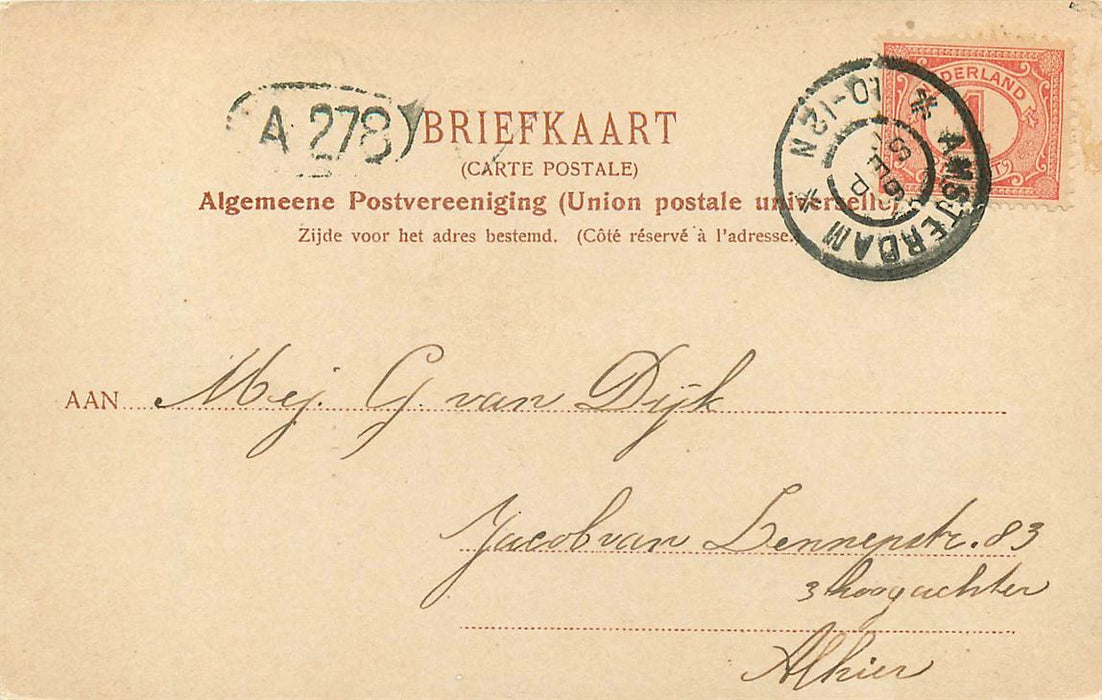 A 278
BRIEFKAART
(CARTE POSTALE)
Algemeene Postvereeniging (Union postale universelle)
Zijde voor het adres bestemd. (Côté réservé à l'adresse.)
NEDERLAND
1
AMSTERDAM
10-12N
SEP
AAN Mej. G. van Dijk
Jacob van Lennepstr. 83
3 hoog achter
Alhier